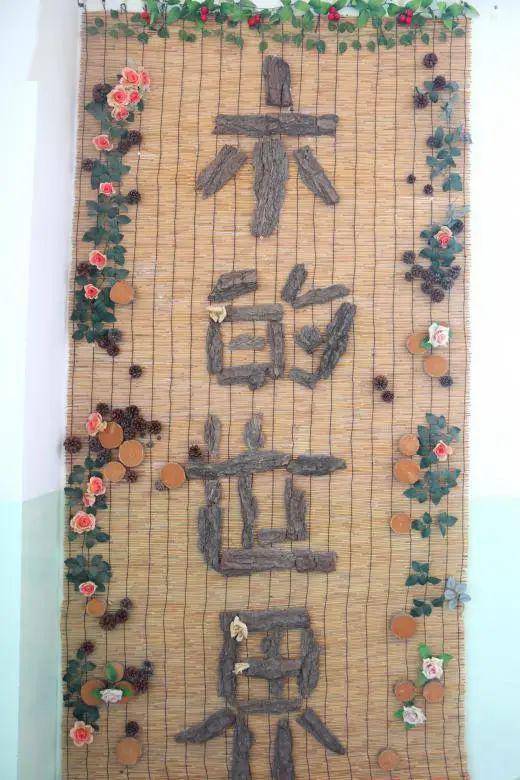 木
的
世
界